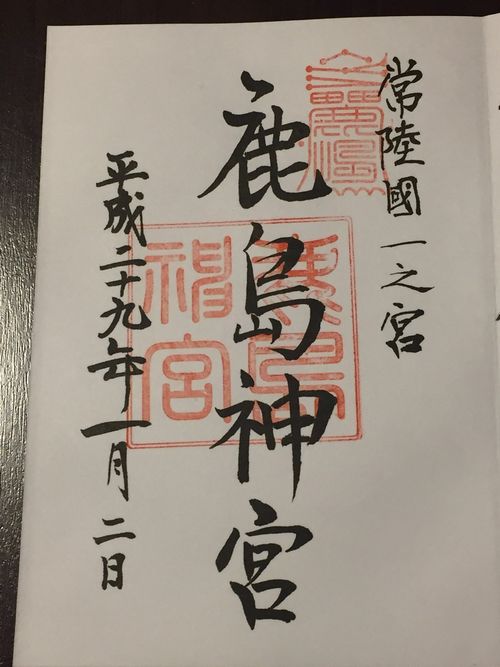 常陸國一之宮
鹿島神宮
平成二十九年一月二日
鹿島
神宮